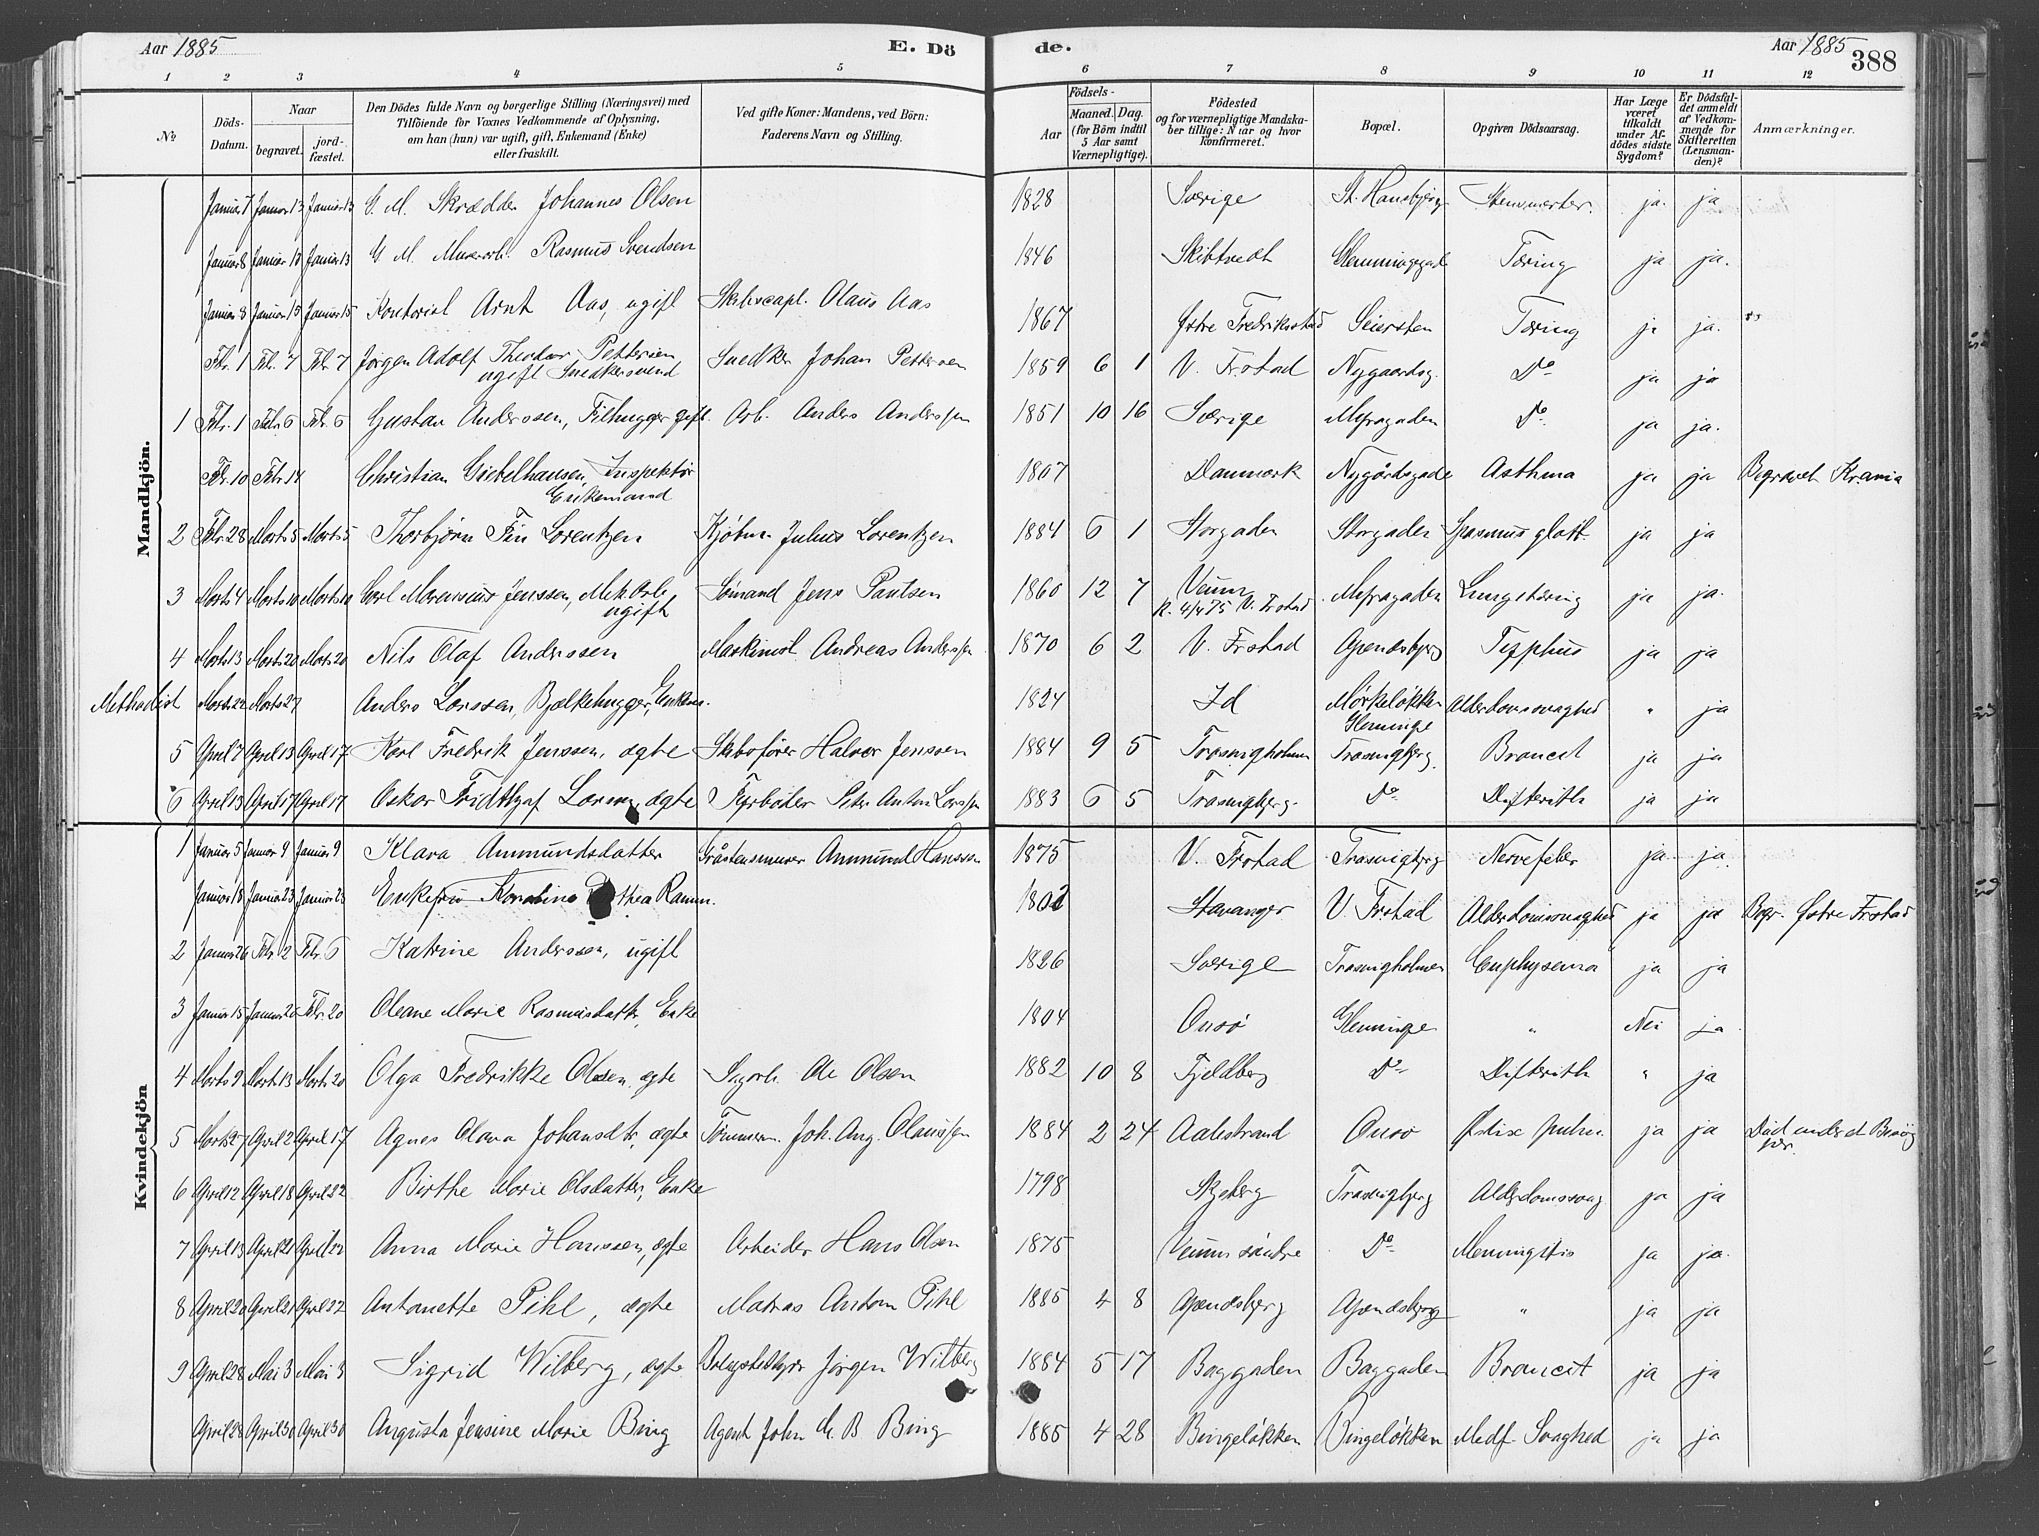 Aar 1885 E. Dö de. Aar 1885 388
1 2 3 4 5 6 7 8 9 10 11 12
№ Döds-Datum. Naar begravet. jord-fæstet. Den Dödes fulde Navn og borgerlige Stilling (Næringsvei) med Tilföiende for Voxnes Vedkommende af Oplysning, om han (hun) var ugift, gift, Enkemand (Enke) eller fraskilt. Ved gifte Koner: Mandens, ved Börn: Faderens Navn og Stilling. Födsels- Aar Maaned. Dag. (for Börn indtil 5 Aar samt Værnepligtige). Födested og for værnepligtige Mandskaber tillige: Naar og hvor konfirmeret. Bopæl. Opgiven Dödsaarsag. Har Læge været tilkaldt under Afdödes sidste Sygdom? Er Dödsfaldet anmeldt af Vedkommende for Skifteretten (Lensmanden)? Anmærkninger.
Mandkjön.
Januar 7 Januar 13 Januar 13 G. M. Skrædder Johannes Olsen 1828 Sverige St. Hansbjerg ja ja
Januar 8 Januar 13 Januar 13 G. M. Murerarb. Rasmus Svendsen 1846 Skibtvedt Glemmingegad Tæring ja ja.
Januar 8 Januar 15 Januar 15 Kontorist Arnt Aas, ugift Skibscapt. Olaus Aas 1867 Østre Fredriksstad Seiersten Tæring ja ja.
Febr. 1 Febr. 7 Febr 7 Jørgen Adolf Theodor Pettersen ugift Snedkersvend Snedker Johan Pettersen 1859 6 1 V. Frstad Nygaardsg. Do ja ja
1 Febr. 1 Febr. 6 Febr. 6 Gustav Anderssen, Filhugger gift. Arb. Anders Anderssen 1851 10 16 Sverige Myragaden Do ja ja.
Febr. 10 Febr 14 Christian Giebelhausen, Inspektör Enkemand 1807 Danmark Nygårdsgade Asthma ja ja Begravet Krania
2 Febr. 28 Marts 5 Marts 5 Thorbjørn Fin Lorentzen Kjøbm. Julius Lorentzen 1884 6 1 Storgaden Storgaden Spasmus glott. ja ja
3 Marts 4 Marts 10 Marts 10 Carl Marensius Jenssen, Mek. Arb. ugift Sømand Jens Paulsen 1860 12 7 Veum K. 4/4 75 V. Frstad Myragaden Lungetæring ja ja.
4 Marts 13 Marts 20 Marts 20 Nils Olaf Anderssen Maskinist Andreas Anderssen 1870 6 2 V. Frstad Apenæsbjerg Typhus ja ja
Methodist Marts 22 Marts 27 Anders Larssen, Bjælkehugger, Enkem. 1824 Id Mørkeløkken Glemminge Alderdomssvaghed " ja
5 April 7 April 13 April 17 Karl Fredrik Jenssen, ægte Skibsfører Halvor Jenssen 1884 9 5 Trosvigholmen Trosvigbjerg. Broncit ja ja
6 April 13 April 17 April 17 Oskar Fridthjof Larsen, ægte Fyrbøter Peter Anton Larssen 1883 6 5 Trosvigbjerg. Do Difterith ja ja
Kvindekjön
1 Januar 5 Januar 9 Januar 9 Klara Ammundsdatter Gråstensmurer Ammund Hanssen 1875 V. Frstad Trosvigbjerg Nervefeber ja ja.
Januar 18 Januar 23 Januar 23 Enkefru Ramm. 1802 Stavanger V. Frstad Alderdomssvaghed ja ja Begr. Østre Frstad
2 Januar 26 Febr. 2 Febr. 6 Katrine Anderssen, ugift 1826 Sverige Trosvigholmen Emphysema ja ja
3 Januar 15 Januar 20 Febr. 20 Oleane Marie Rasmusdatter, Enke 1804 Onsö Glemminge " Nei ja
4 Marts 9 Marts 13 Marts 20 Olga Fredrikke Olsen, ægte Sagarb. Ole Olsen 1882 10 8 Fjeldberg Do Difterith " ja
5 Marts 27 April 2 April 17 Agnes Olava Johansdtr, ægte Tømmerm. Joh. Aug. Olaussen 1884 2 24 Aalestrand Onsö ja ja Död under et Besøg her.
6 April 12 April 18 April 22 Birthe Marie Olsdatter, Enke 1798 Skjeberg Trosvigbjerg Alderdomssvag ja ja
7 April 13 April 21 April 22 Anna Marie Hanssen, ægte Arbeider Hans Olsen 1875 Veum søndre Do Menningitis ja ja.
8 April 20 April 21 April 22 Antonette Pihl, ægte Matros Anton Pihl 1885 4 8 Apenæsbjerg Apenæsbjerg " ja ja
9 April 28 Mai 3 Mai 3 Sigrid Wilberg, ægte Jørgen Wilberg 1884 5 17 Baggaden Baggaden Broncit ja ja
April 28 April 30 April 30 Augusta Jensine Marie Bing Agent John M. B Bing 1885 4 28 Bingeløkken Bingeløkken Medf. Svaghed ja ja